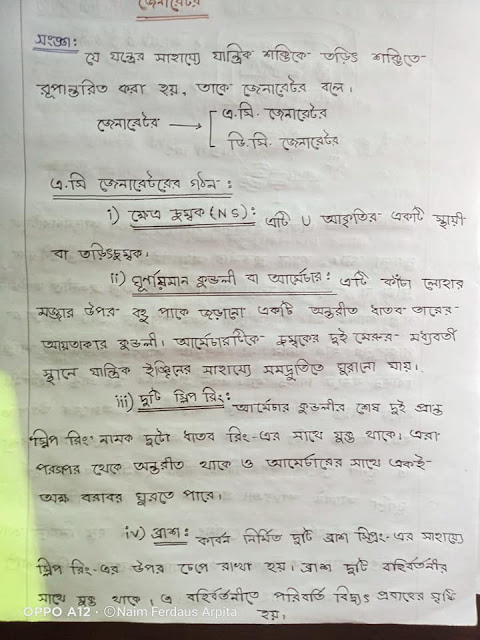 জেনারেটর
সংজ্ঞা:
যে যন্ত্রের সাহায্যে যান্ত্রিক শক্তিকে তড়িৎ শক্তিতে
রূপান্তরিত করা হয়, তাকে জেনারেটর বলে।
জেনারেটর → এ.সি. জেনারেটর
ডি.সি. জেনারেটর
এ.সি জেনারেটরের গঠন:
i) ক্ষেত্র চুম্বক (NS): এটি U আকৃতির একটি স্থায়ী
বা তড়িৎচুম্বক।
ii) ঘূর্ণায়মান কুন্ডলী বা আর্মেচার: এটি কাঁচা লোহার
মজ্জার উপর বহু পাকে জড়ানো একটি অন্তরীত ধাতব তারের
আয়তাকার কুন্ডলী। আর্মেচারটিকে চুম্বকের দুই মেরুর মধ্যবর্তী
স্থানে যান্ত্রিক ইঞ্জিনের সাহায্যে সমদ্রুতিতে ঘুরানো যায়।
iii) দুটি স্লিপ রিং: আর্মেচার কুন্ডলীর শেষ দুই প্রান্ত
স্লিপ রিং নামক দুটো ধাতব রিং-এর সাথে যুক্ত থাকে। এরা
পরস্পর থেকে অন্তরীত থাকে ও আর্মেচারের সাথে একই
অক্ষ বরাবর ঘুরতে পারে।
iv) ব্রাশ: কার্বন নির্মিত দুটি ব্রাশ স্প্রিং-এর সাহায্যে
স্লিপ রিং-এর উপর চেপে রাখা হয়। ব্রাশ দুটি বহির্বর্তনীর
সাথে যুক্ত থাকে, এ বহির্বর্তনীতে পরিবর্তি বিদ্যুৎ প্রবাহের সৃষ্টি
হয়।
OPPO A12 • ©Naim Ferdaus Arpita